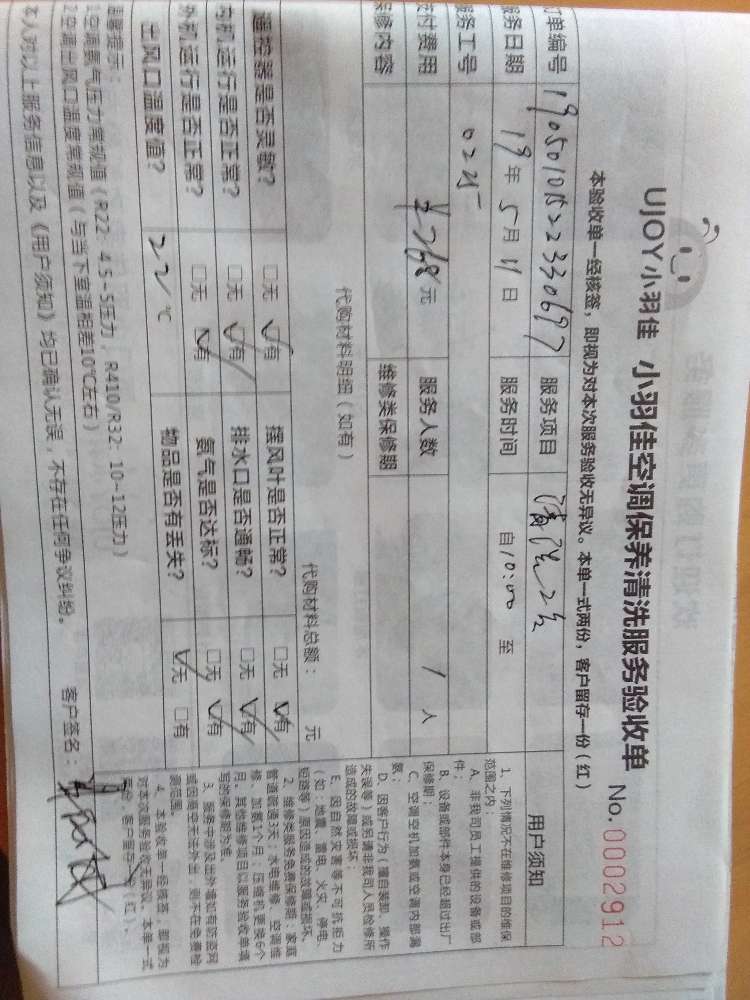 UJOY小羽佳 小羽佳空调保养清洗服务验收单 No. 0002912
本验收单一经核签，即视为对本次服务验收无异议。本单一式两份，客户留存一份（红）
订单编号 服务项目 清洗2台 用户须知
服务日期 19年5月11日 服务时间 自10:00 至
服务工号 025
支付费用 ¥268元 服务人数 1人
保修内容 维修类保修期
代购材料明细（如有） 代购材料总额： 元
遥控器是否灵敏？ □无 ☑有 摆风叶是否正常？ □无 ☑有
内机运行是否正常？ □无 ☑有 排水口是否通畅？ □无 ☑有
外机运行是否正常？ □无 ☑有 氨气是否达标？ □无 ☑有
出风口温度值？ 22℃ 物品是否有丢失？ ☑无 □有
温馨提示：
1空调氨气压力常规值（R22：4.5-5压力，R410/R32：10-12压力）
2空调出风口温度常规值（与当下室温相差10℃左右）
本人对以上服务信息以及《用户须知》均已确认无误，不存在任何争议纠纷。 客户签名：
1、下列情况不在维修项目的维保
范围之内：
A、非我司员工提供的设备或部
件；
B、设备或部件本身已经超过出厂
保修期；
C、空调空机加氨或空调内部漏
氨；
D、因客户行为（擅自装卸、操作
失误等）或另请非我司人员检修所
造成的故障或损坏；
E、因自然灾害等不可抗拒力
（如：地震、雷电、火灾、停电、
短路等）原因造成的故障或损坏。
2、维修类服务免费保修期：家庭
管道疏通3天；水电维修、空调维
修、加氨1个月；压缩机更换6个
月，其他维修项目以服务验收单填
写的保修期为准。
3、服务中涉及出外墙如有防盗网
或因高空无法外出，则不在免费检
测范围。
4、本验收单一经核签，即视为
对本次服务验收无异议。本单一式
两份，客户留存一份（红）。